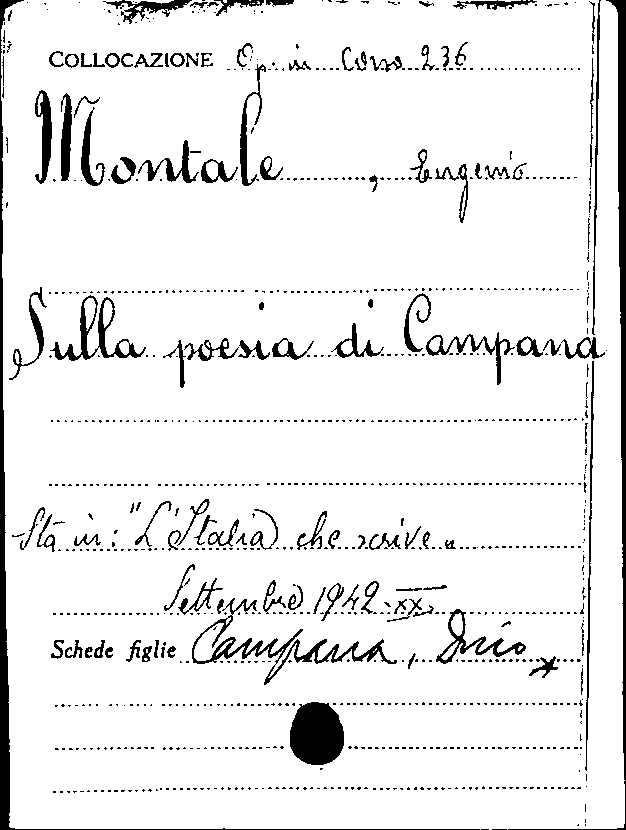 COLLOCAZIONE Op. in Corso 236
Montale, Eugenio
Sulla poesia di Campana
Sta in: "L'Italia che scrive"
Settembre 1942-XX.
Schede figlie Campana, Dino *